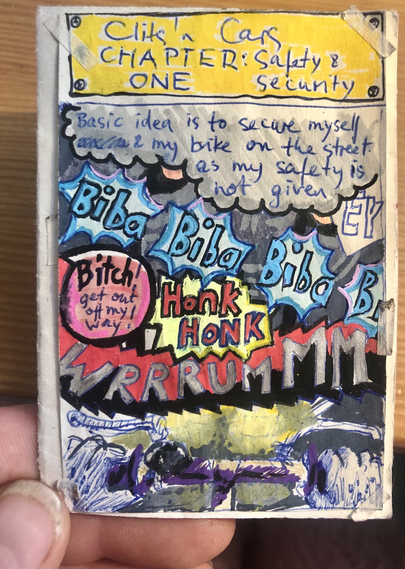 Clits'n Cars
CHAPTER: Safety &
ONE security
Basic idea is to secure myself
& my bike on the street
as my safety is
not given
EY
Biba
Biba
Biba
Bi
Bitch!
get out
off my
way!
Honk
HONK
WRRRUMMMM